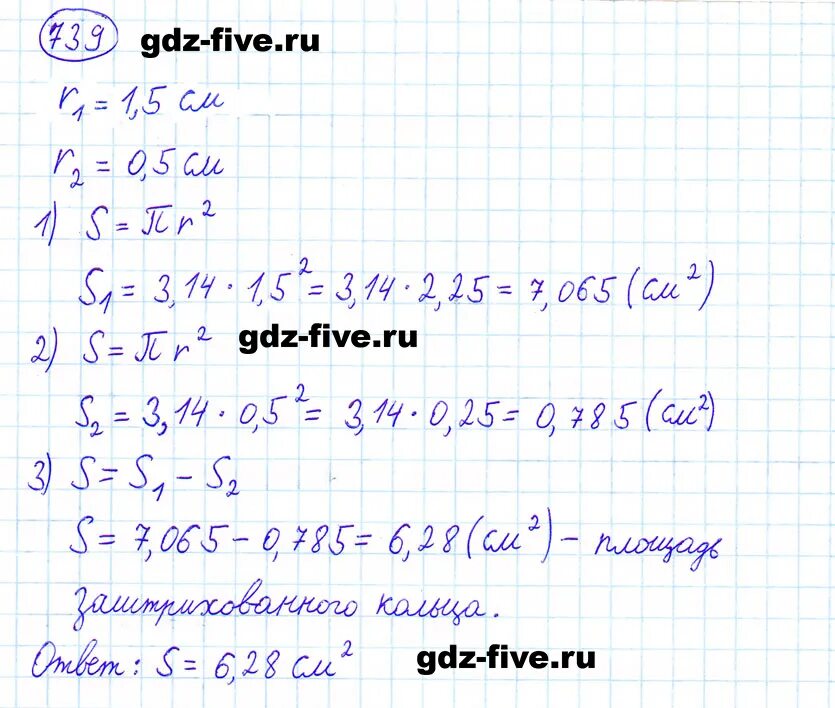 739 gdz-five.ru
r₁ = 1,5 см
r₂ = 0,5 см
1) S = πr²
S₁ = 3,14 · 1,5² = 3,14 · 2,25 = 7,065 (см²)
2) S = πr² gdz-five.ru
S₂ = 3,14 · 0,5² = 3,14 · 0,25 = 0,785 (см²)
3) S = S₁ – S₂
S = 7,065 – 0,785 = 6,28 (см²) – площадь
заштрихованного кольца.
Ответ: S = 6,28 см² gdz-five.ru